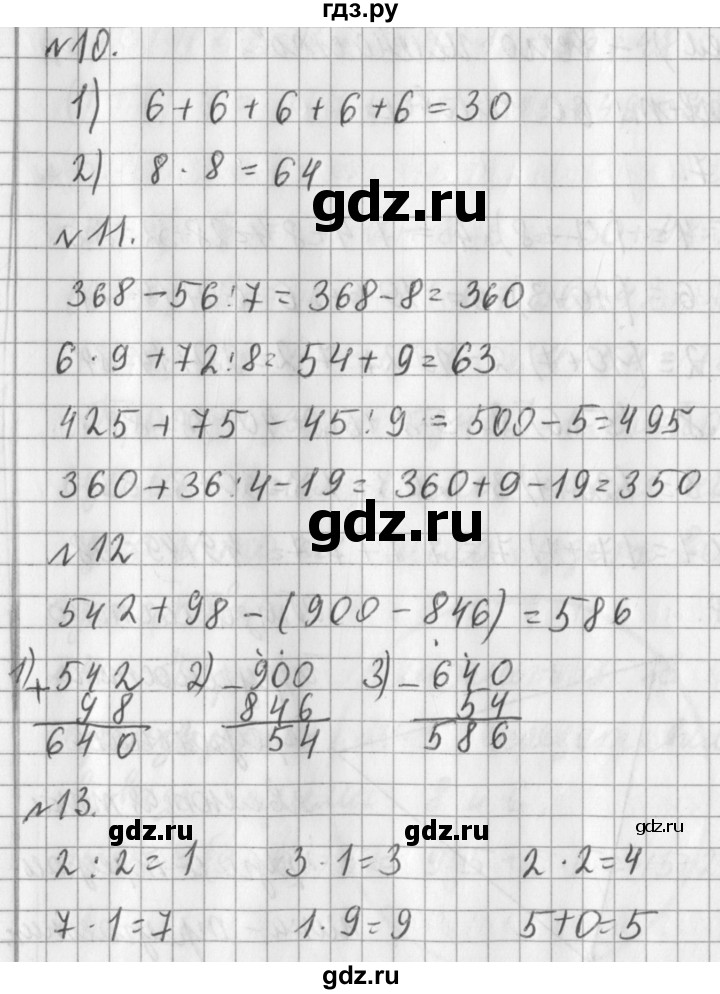 гдз.ру
№10.
1) 6 + 6 + 6 + 6 + 6 = 30
2) 8 · 8 = 64
gdz.ru
№11.
368 - 56 : 7 = 368 - 8 = 360
6 · 9 + 72 : 8 = 54 + 9 = 63
425 + 75 - 45 : 9 = 500 - 5 = 495
360 + 36 : 4 - 19 = 360 + 9 - 19 = 350
gdz.ru
№12
542 + 98 - (900 - 846) = 586
1) + 542 2) - 900 3) - 640
98 846 54
640 54 586
№13.
gdz.ru gdz.ru gdz.ru
2 : 2 = 1 3 · 1 = 3 2 · 2 = 4
7 · 1 = 7 1 · 9 = 9 5 + 0 = 5
gdz.ru